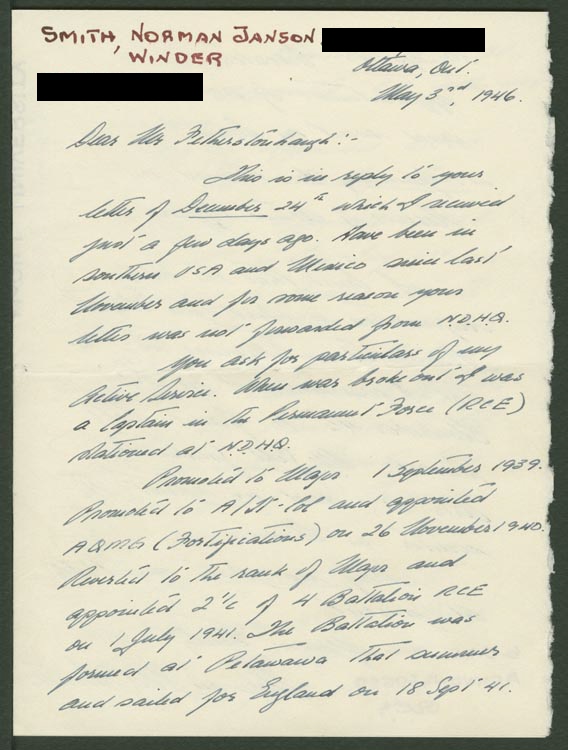 SMITH, NORMAN JANSON
WINDER
Ottawa, Ont.
May 3rd, 1946.
Dear Mr Fetherstonhaugh:-
This is in reply to your
letter of December 24th which I received
just a few days ago. Have been in
southern USA and Mexico since last
November and for some reason your
letter was not forwarded from N.D.H.Q.
You ask for particulars of my
Active Service. When war broke out I was
a Captain in the Permanent Force (RCE)
stationed at N.D.H.Q.
Promoted to Major 1 September 1939.
Promoted to A/Lt-Col and appointed
AQMG (Fortifications) on 26 November 1940.
Reverted to the rank of Major and
appointed 2 i/c of 4 Battalion RCE
on 1 July 1941. The Battalion was
formed at Petawawa that summer
and sailed for England on 18 Sept 41.